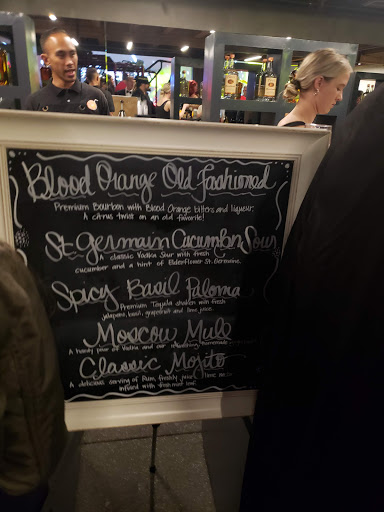 Blood Orange Old fashioned
Premium Bourbon with Blood Orange bitters and liqueur.
A citrus twist on an old favorite!
St-Germain Cucumber Sour
A classic Vodka Sour with fresh
cucumber and a hint of Elderflower St. Germaine.
Spicy Basil Paloma
Premium Tequila shaken with fresh
jalapeno, basil, grapefruit and lime juice.
Moscow Mule
A handy pour of Vodka and our refreshing homemade
Classic Mojito
A delicious serving of Rum, freshly juice lime
infused with fresh mint leaf.